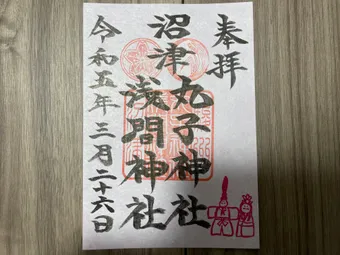 奉拝
沼津
丸子神社
浅間神社
令和五年三月二十六日